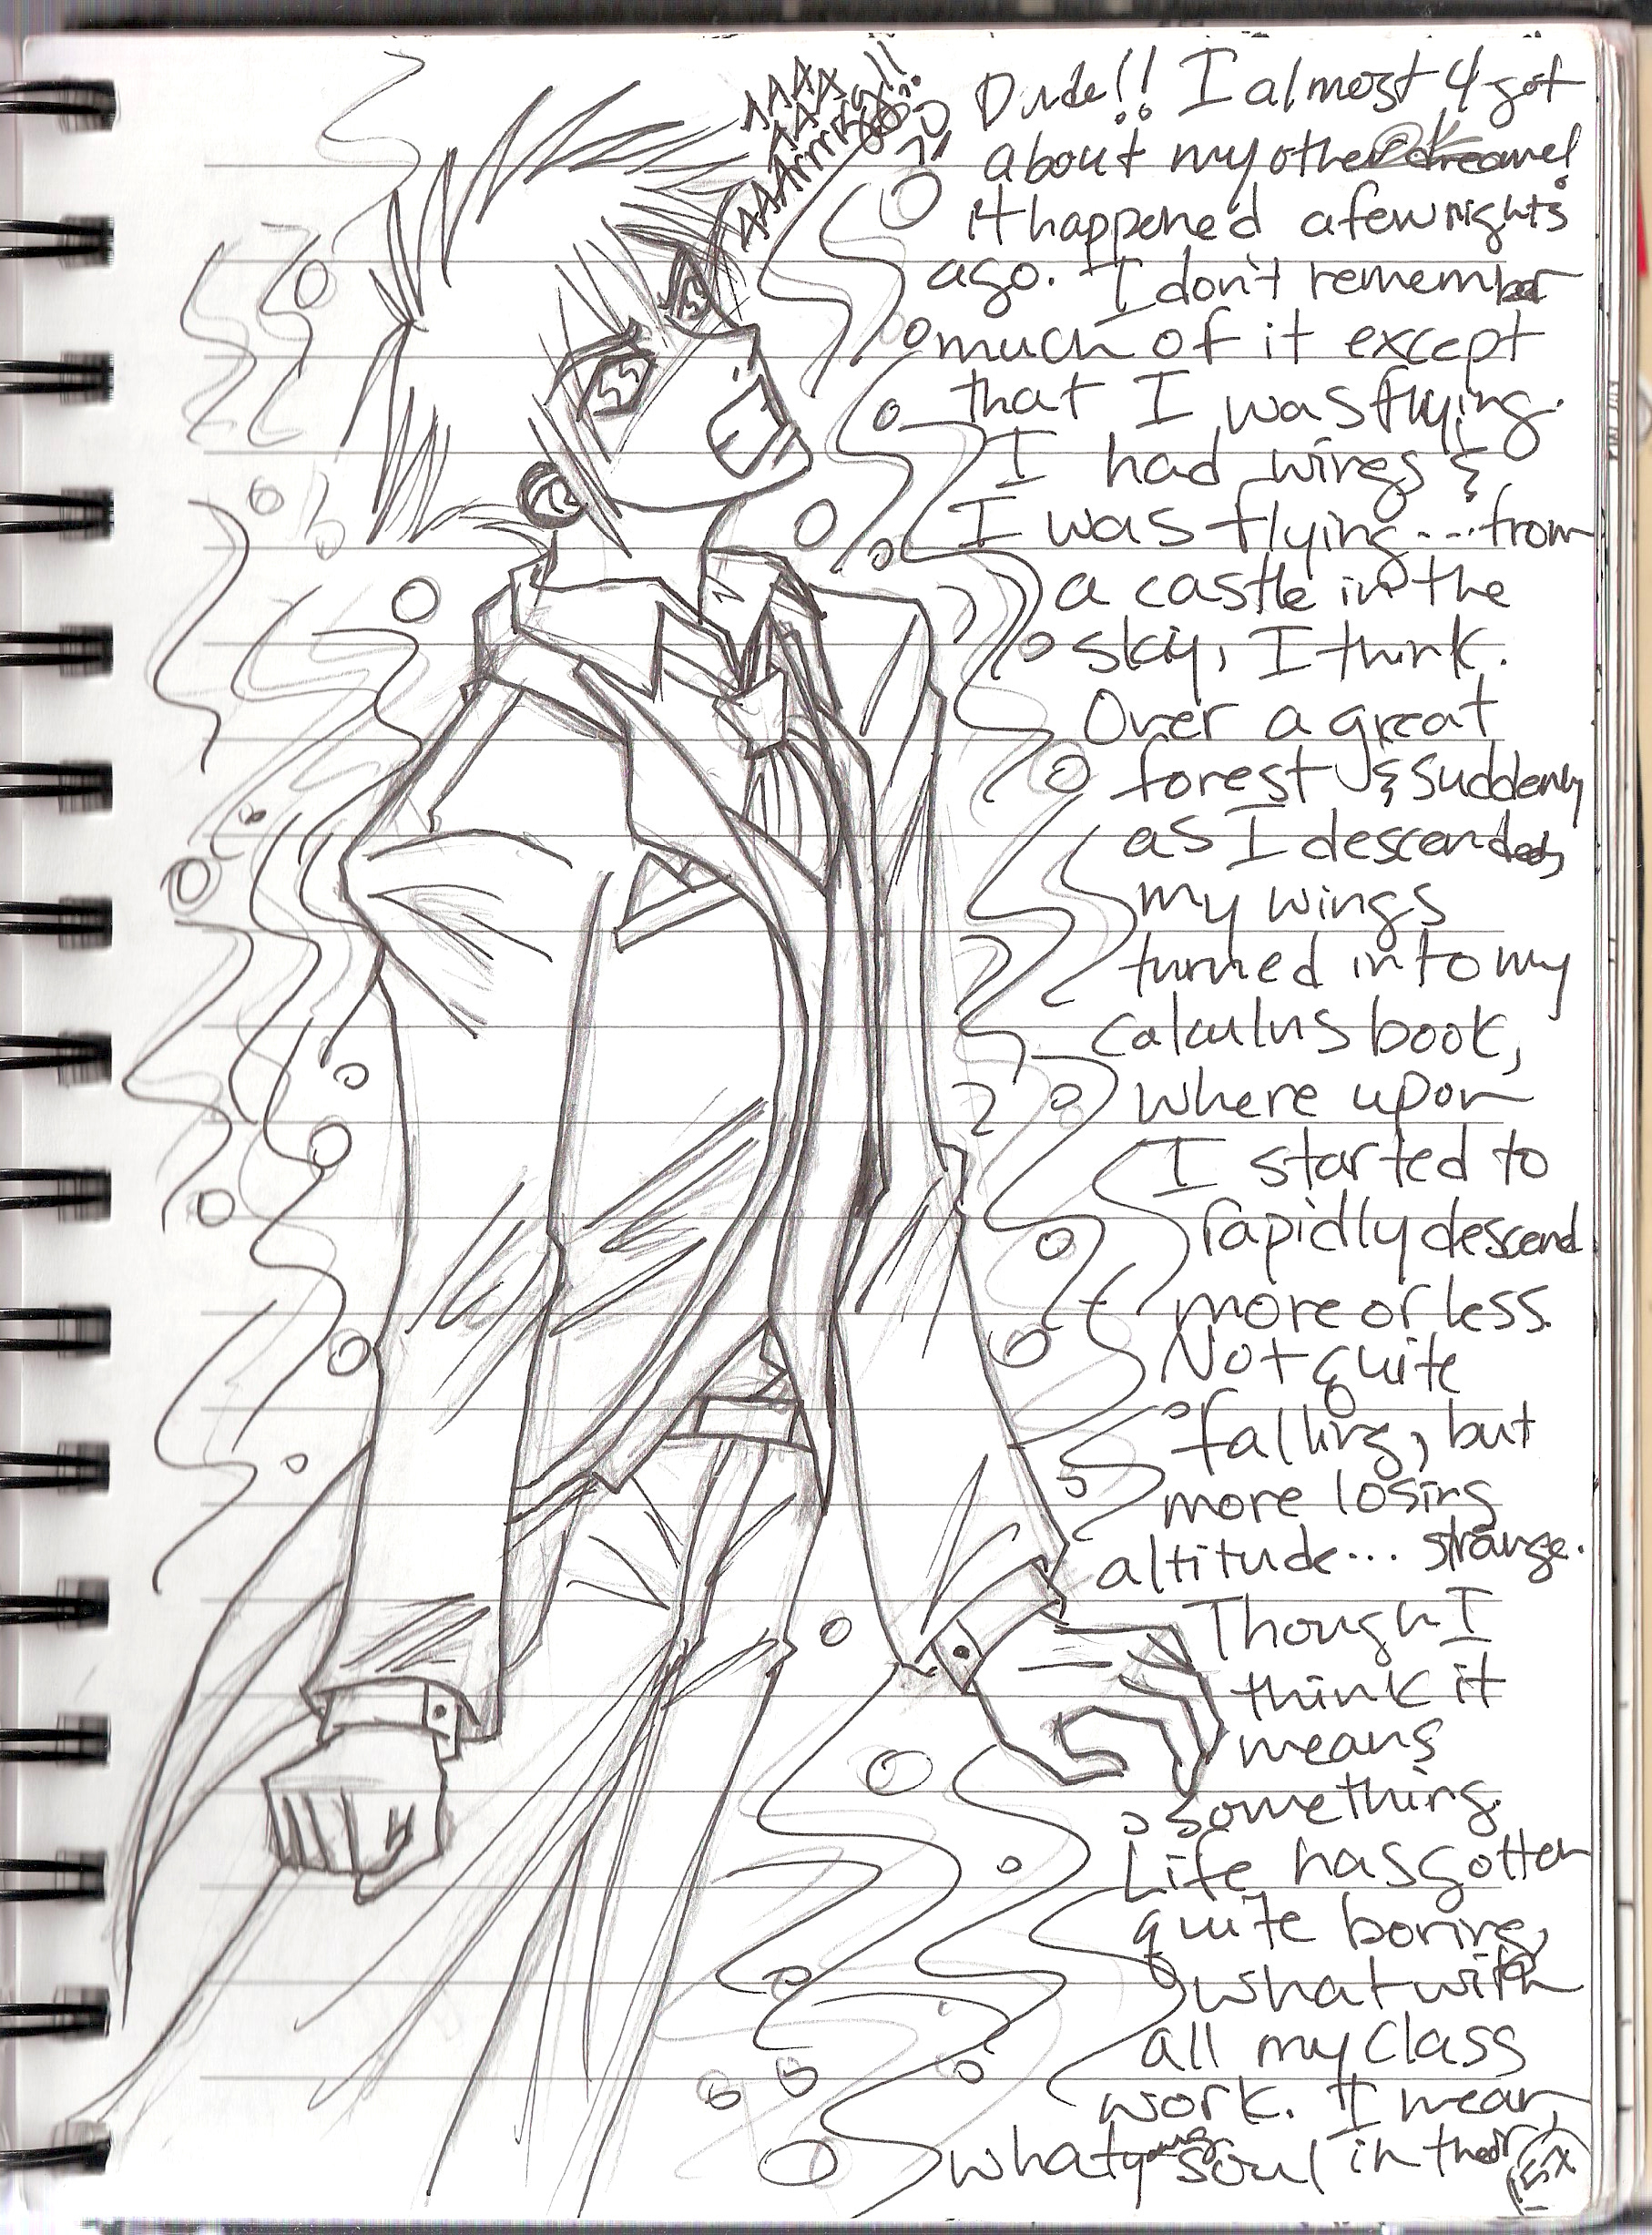 AAAA
AAA
AAArrrrg!!
Dude!! I almost 4got
about my other dream!
it happened a few nights
ago. I don't remember
much of it except
that I was flying.
I had wings &
I was flying....from
a castle in the
sky, I think.
Over a great
forest & suddenly
as I descended,
my wings
turned into my
calculus book,
where upon
I started to
rapidly descend
more or less.
Not quite
falling, but
more losing
altitude... strange.
Though I
think it
means
something.
Life has gotten
quite boring,
what with
all my class
work. I mean,
what young soul in their